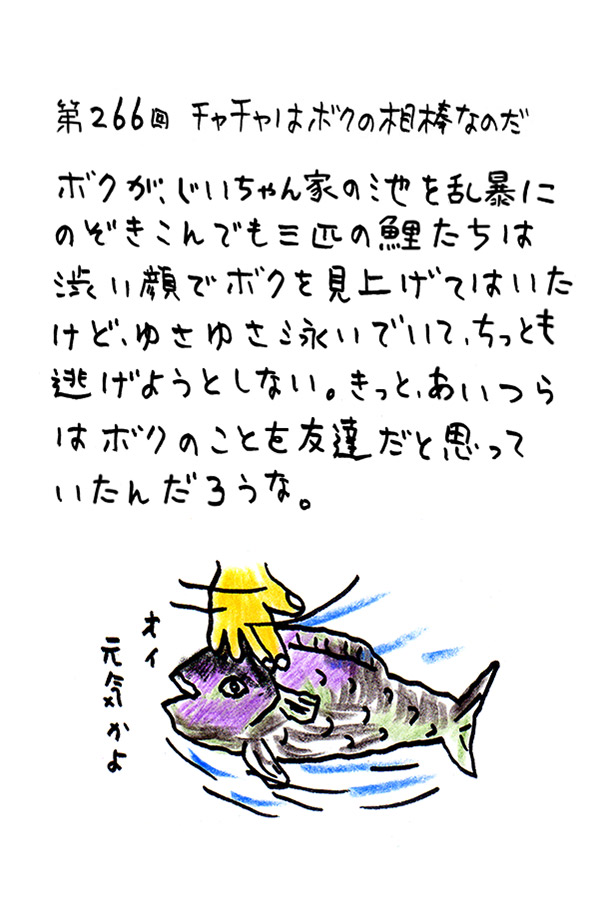 第266回 チャチャはボクの相棒なのだ
ボクが、じいちゃん家の池を乱暴に
のぞきこんでも三匹の鯉たちは
渋い顔でボクを見上げてはいた
けど、ゆさゆさ泳いでいて、ちっとも
逃げようとしない。きっと、あいつら
はボクのことを友達だと思って
いたんだろうな。
オイ
元気かよ